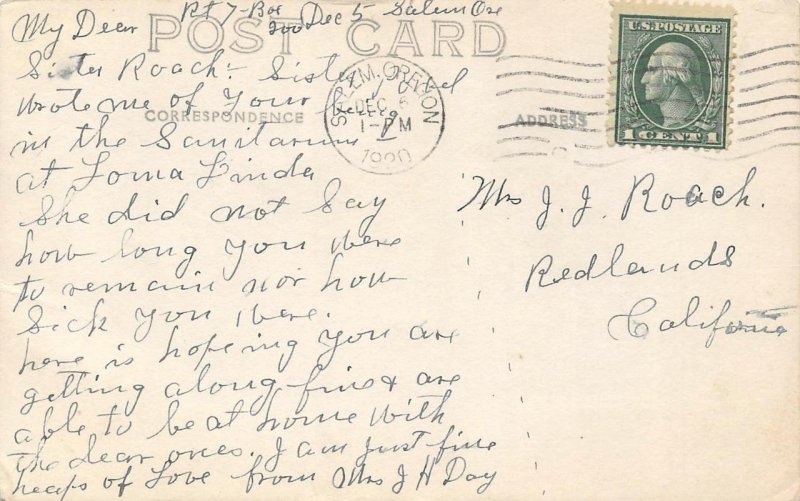 Rt 7 - Box 200 Dec 5 Salem Ore
POST CARD
My Dear
Sister Roach:- Sister
wrote me of Your being
in the Sanitarium
at Loma Linda
She did not Say
how long you were
to remain nor how
Sick you were.
here is hopeing you are
getting along fine & are
able to be at home with
the dear ones. I am Just fine
heaps of Love from Mrs J H Day
CORRESPONDENCE
ADDRESS
SALEM, OREGON
DEC 6
1-PM
1920
U.S. POSTAGE
1 CENT 1
Mrs J. J. Roach.
Redlands
California